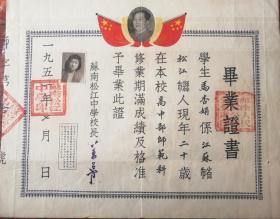 畢業證書
學生馬杏娟係江蘇省
松江縣人現年二十歲
在本校高中部師範科
修業期滿成績及格准
予畢業此證
蘇南松江中學校長
一九五 年 月 日